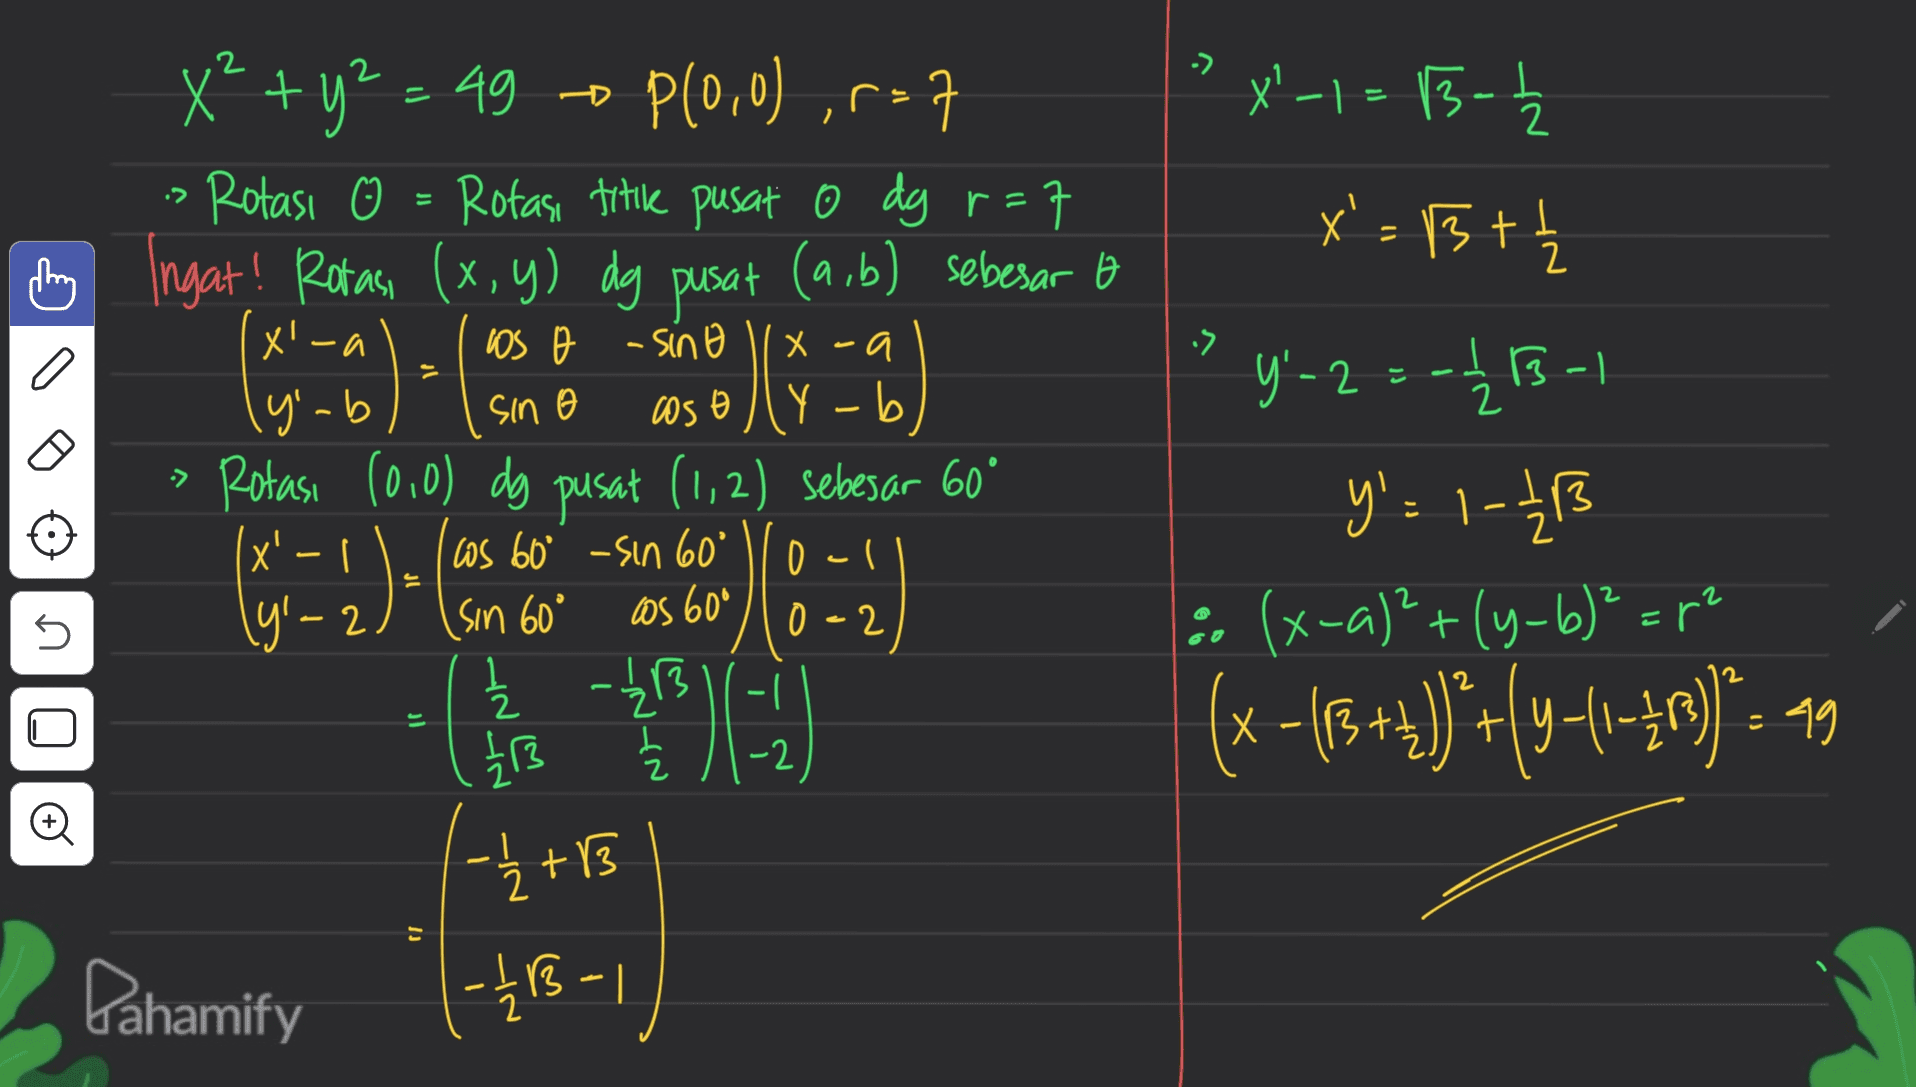 x² + y² = 49 → P(0,0) , r = 7
∴> Rotasi O = Rotasi titik pusat O dg r = 7
Ingat! Rotasi (x, y) dg pusat (a,b) sebesar θ
(x' - a) = (cos θ - sin θ)(x - a)
(y' - b) (sin θ cos θ)(y - b)
∴> Rotasi (0,0) dg pusat (1,2) sebesar 60°
(x' - 1) = (cos 60° - sin 60°)(0 - 1)
(y' - 2) (sin 60° cos 60°)(0 - 2)
= (1/2 -1/2√3)(-1)
(1/2√3 1/2)(-2)
= (-1/2 + √3)
(-1/2√3 - 1)
Pahamify
∴> x' - 1 = √3 - 1/2
x' = √3 + 1/2
∴> y' - 2 = -1/2√3 - 1
y' = 1 - 1/2√3
∴ (x-a)² + (y-b)² = r²
(x - (√3 + 1/2))² + (y - (1 - 1/2√3))² = 49